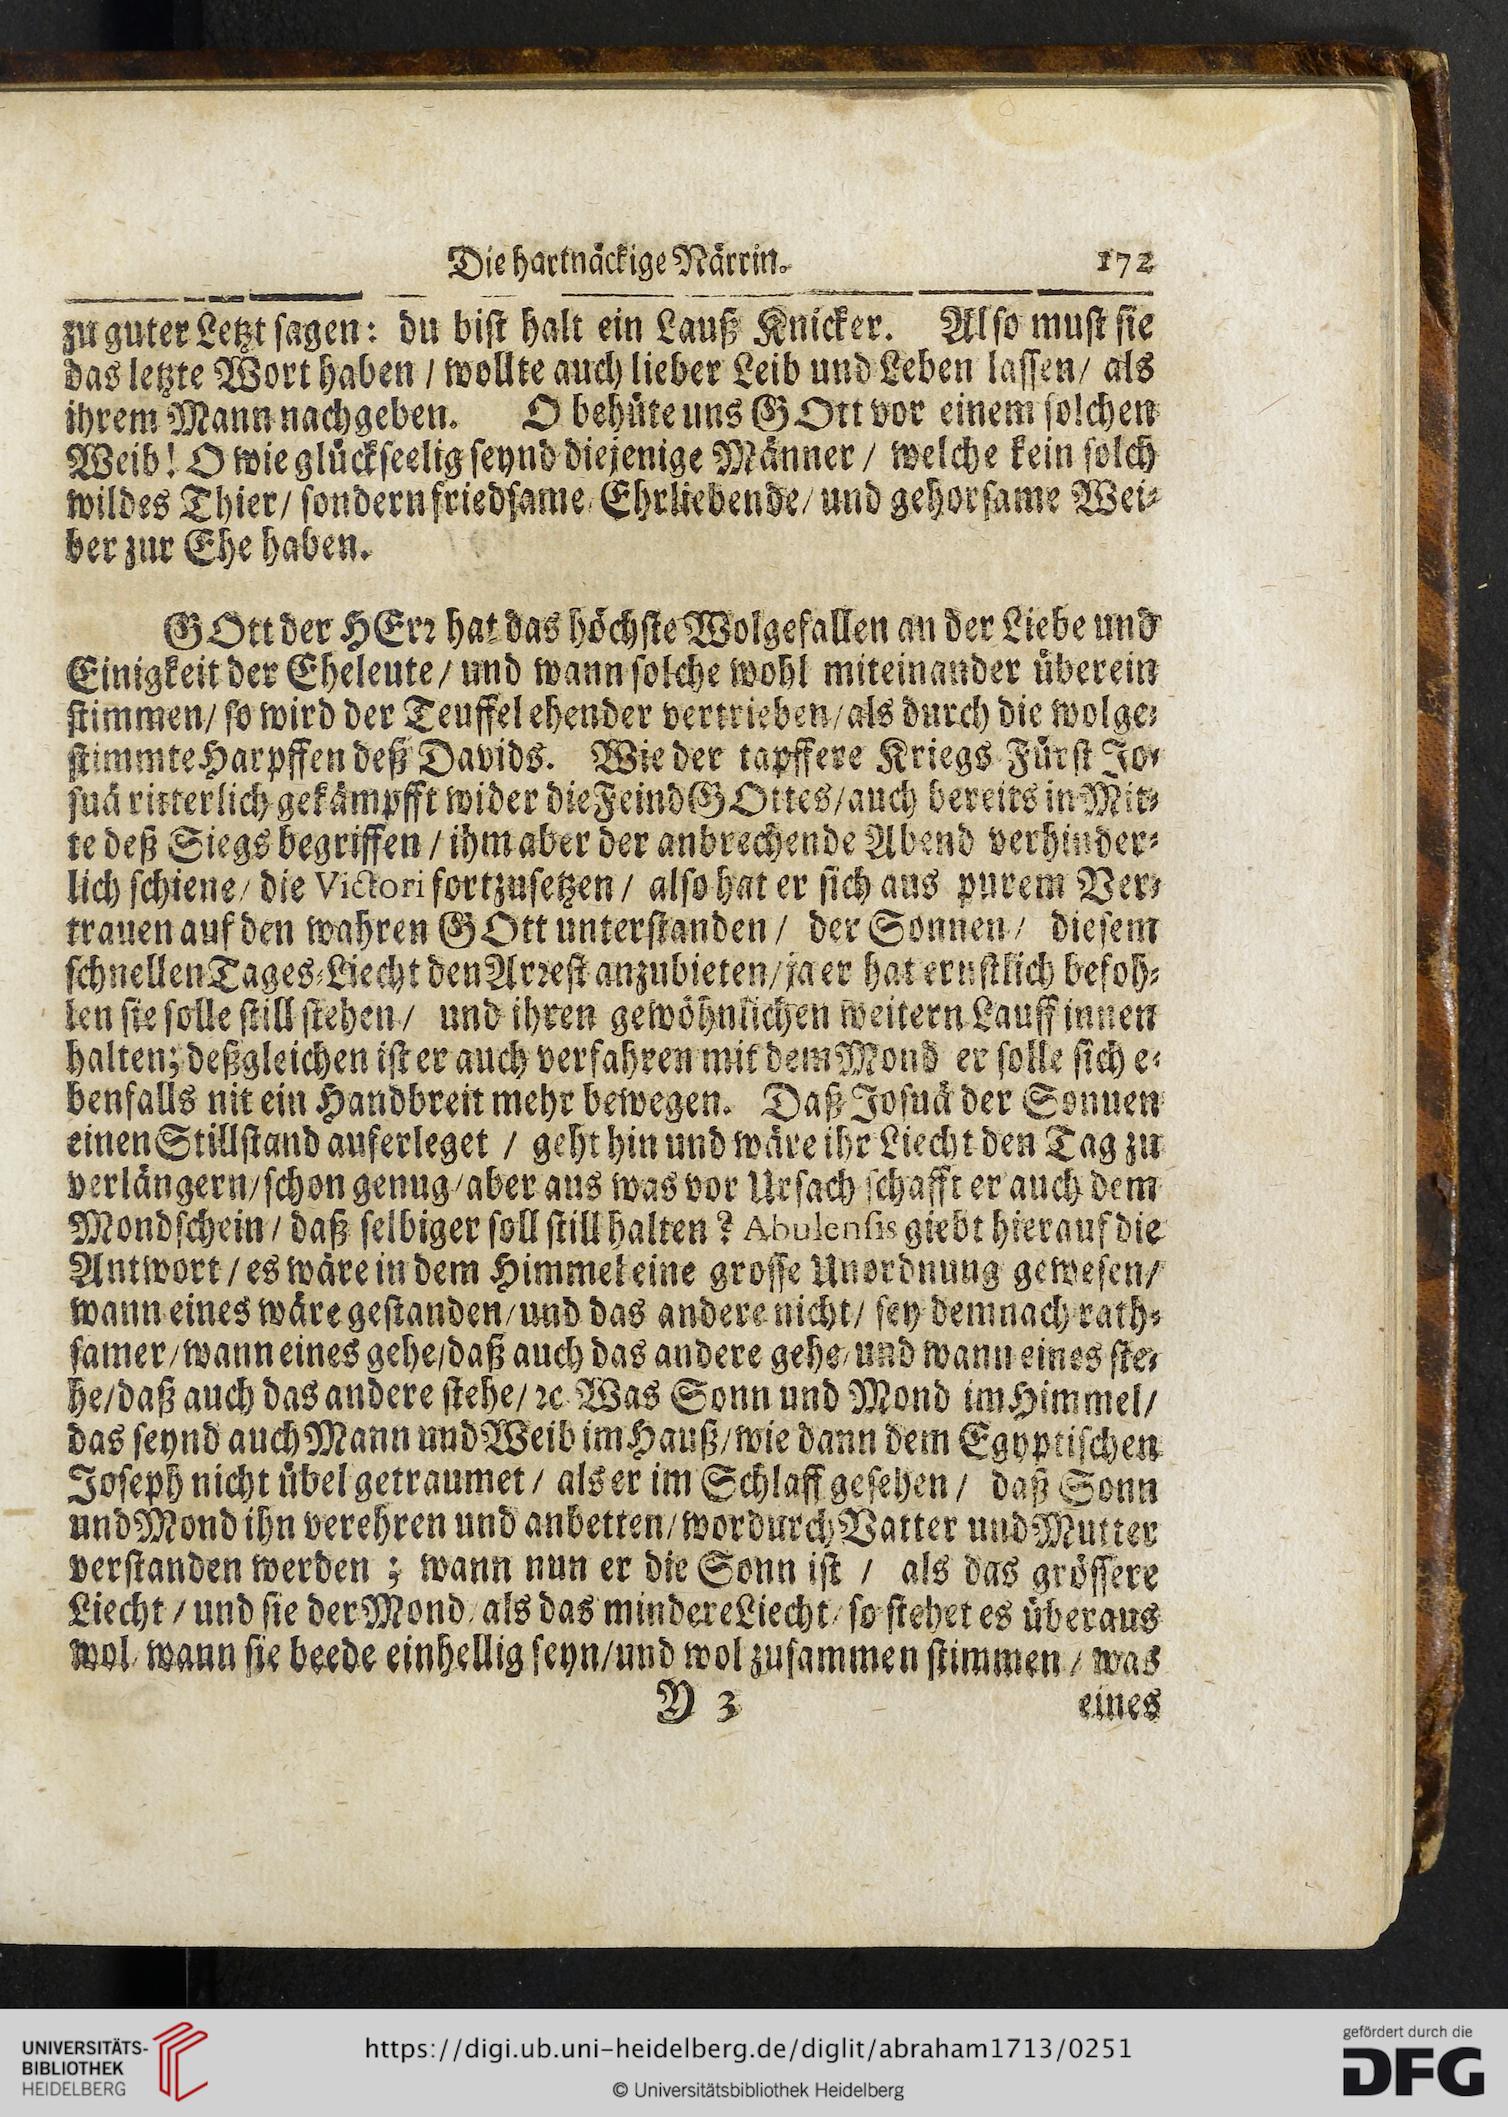 Die hartnäckige Närrin. 172
zu guter Letzt sagen: du bist halt ein Lauß Knicker. Also must sie
das letzte Wort haben / wollte auch lieber Leib und Leben lassen / als
ihrem Mann nachgeben. O behüte uns GOtt vor einem solchen
Weib! O wie glückseelig seynd diejenige Männer / welche kein solch
wildes Thier / sondern friedsame / Ehrliebende / und gehorsame Wei-
ber zur Ehe haben.
GOtt der HErr hat das höchste Wolgefallen an der Liebe und
Einigkeit der Eheleute / und wann solche wohl miteinander überein
stimmen / so wird der Teuffel ehender vertrieben / als durch die wolge-
stimmte Harpffen deß Davids. Wie der tapffere Kriegs Fürst Jo-
suä ritterlich gekämpfft wider die Feind GOttes / auch bereits in Mit-
te deß Siegs begriffen / ihm aber der anbrechende Abend verhinder-
lich schiene / die Victori fortzusetzen / also hat er sich aus purem Ver-
trauen auf den wahren GOtt unterstanden / der Sonnen / diesem
schnellen Tages-Liecht den Arrest anzubieten / ja er hat ernstlich befoh-
len sie solle still stehen / und ihren gewöhnlichen weitern Lauff innen
halten; deßgleichen ist er auch verfahren mit dem Mond er solle sich e-
benfalls nit ein Handbreit mehr bewegen. Daß Josuä der Sonnen
einen Stillstand auferleget / geht hin und wäre ihr Liecht den Tag zu
verlängern / schon genug / aber aus was vor Ursach schafft er auch dem
Mondschein / daß selbiger soll still halten? Abulensis giebt hierauf die
Antwort / es wäre in dem Himmel eine grosse Unordnung gewesen /
wann eines wäre gestanden / und das andere nicht / sey demnach rath-
samer / wann eines gehe / daß auch das andere gehe / und wann eines ste-
he / daß auch das andere stehe / ꝛc. Was Sonn und Mond im Himmel /
das seynd auch Mann und Weib im Hauß / wie dann dem Egyptischen
Joseph nicht übel getraumet / als er im Schlaff gesehen / daß Sonn
und Mond ihn verehren und anbetten / wordurch Vatter und Mutter
verstanden werden; wann nun er die Sonn ist / als das grössere
Liecht / und sie der Mond / als das mindere Liecht / so stehet es überaus
wol / wann sie beede einhellig seyn / und wol zusammen stimmen / was
Y 3 eines
UNIVERSITÄTS-
BIBLIOTHEK
HEIDELBERG
https://digi.ub.uni-heidelberg.de/diglit/abraham1713/0251
© Universitätsbibliothek Heidelberg
gefördert durch die
DFG